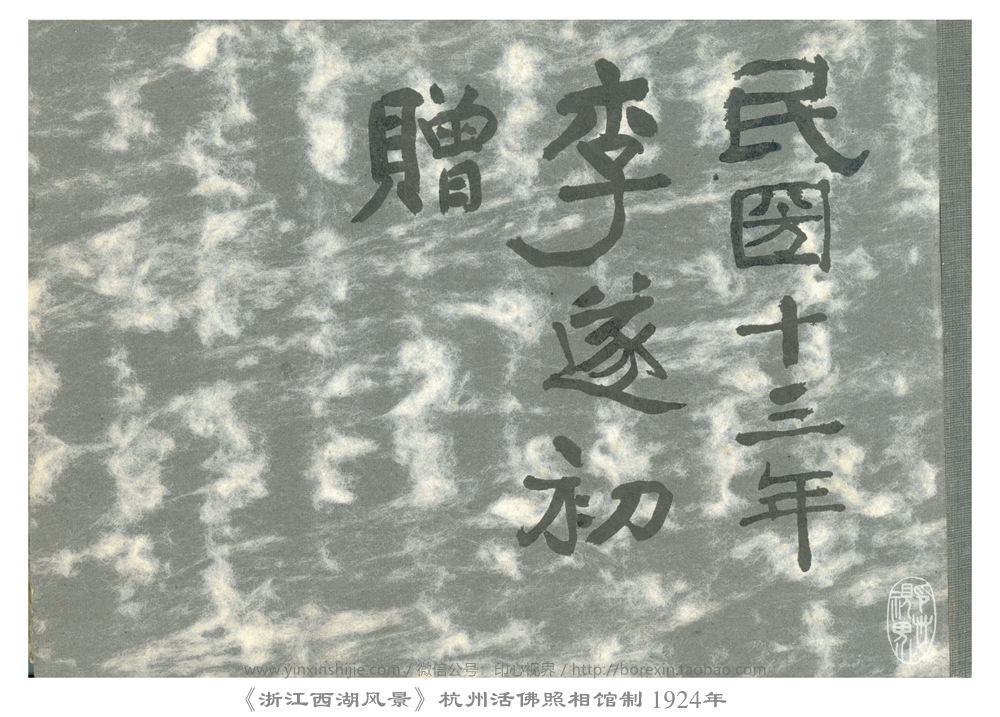 民圀十三年
李遂初
贈
www.yinxinshijie.com / 微信公号：印心视界 / http://borexin.taobao.com
《浙江西湖风景》杭州活佛照相馆制 1924年